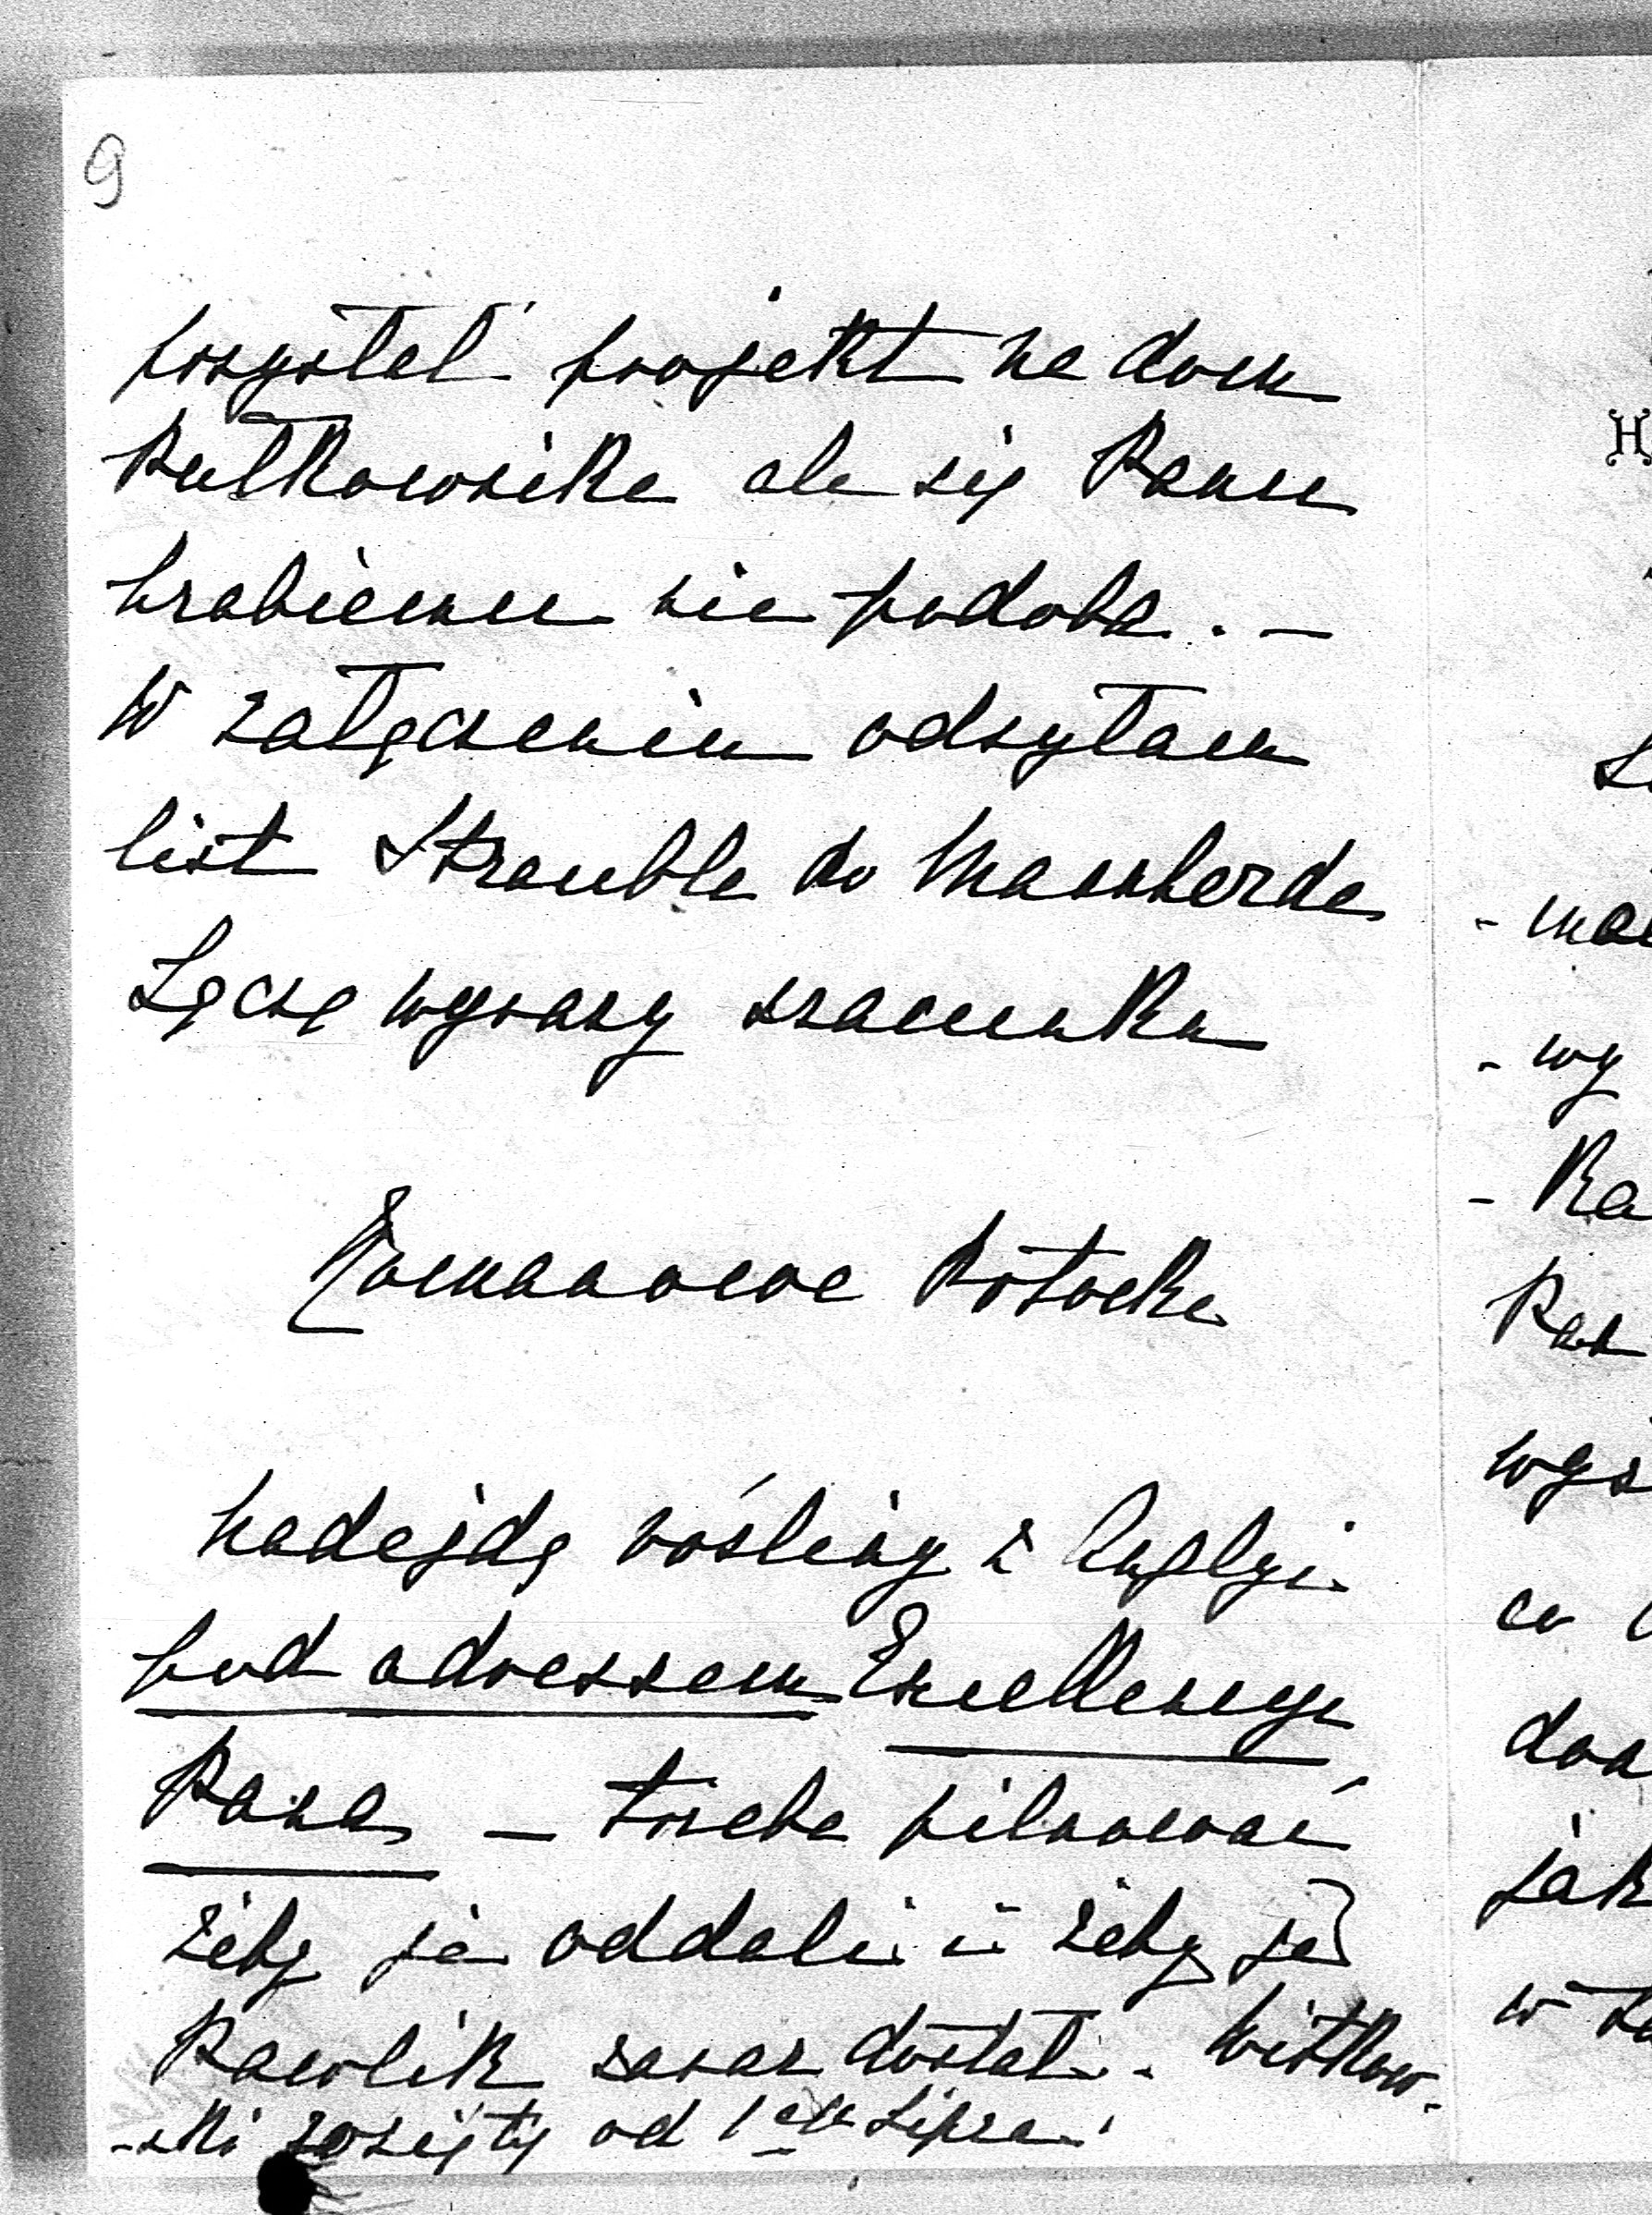 9
przysłał projekt na dom
Pułkownika ale się Panu
hrabiemu nie podoba. —
W załączeniu odsyłam
list Strauble do Mannherde
Łączę wyrazy szacunku
Romanowa Potocka
Nadejdą rośliny z Anglyi
pod adressem Excellencyi
Pana — trzeba pilnować
żeby je oddali i żeby je
Pawlik zaraz dostał. Witkow-
-ski zajęty od 1go Lipca.
H
- wy
- Ka
Pan
jak